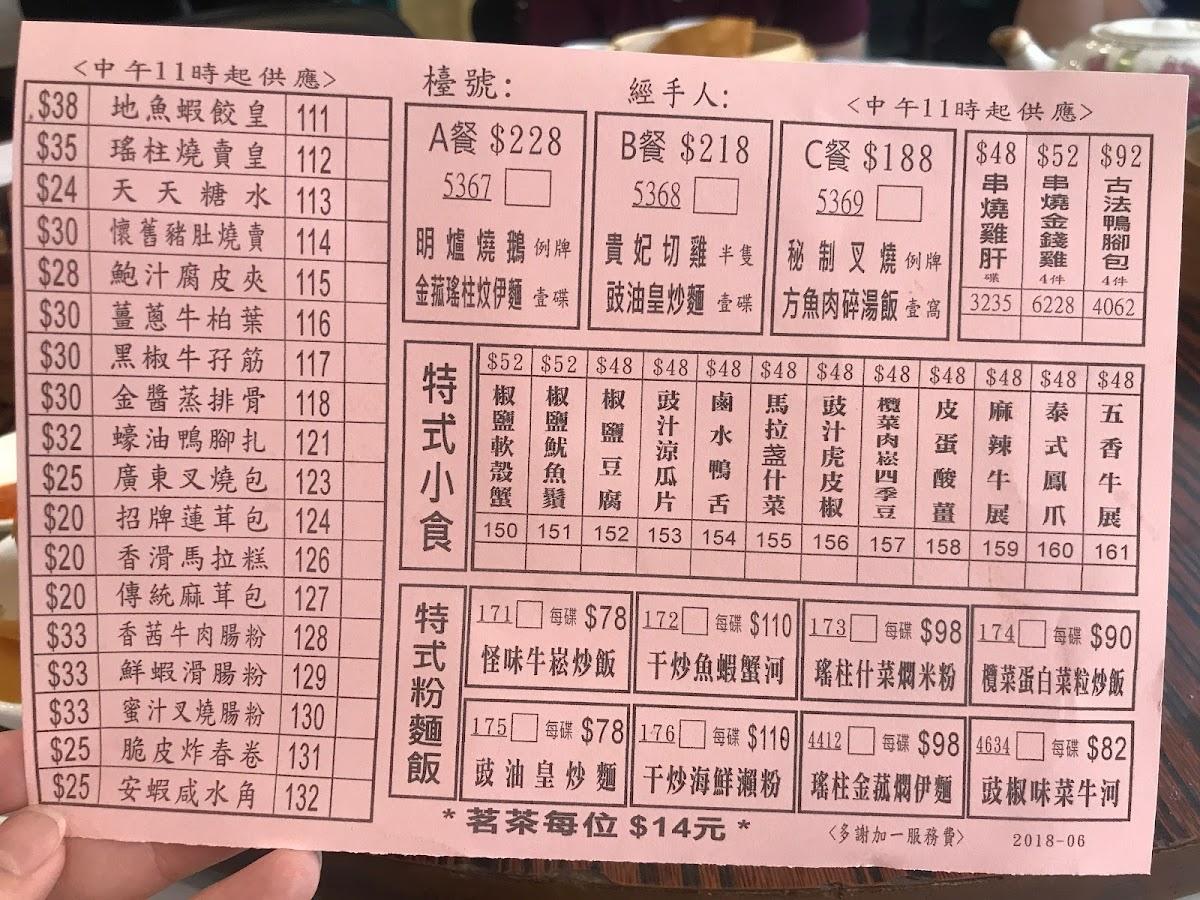 <中午11時起供應>
$38 地魚蝦餃皇 111
$35 瑤柱燒賣皇 112
$24 天天糖水 113
$30 懷舊豬肚燒賣 114
$28 鮑汁腐皮夾 115
$30 薑蔥牛柏葉 116
$30 黑椒牛孖筋 117
$30 金醬蒸排骨 118
$32 蠔油鴨腳扎 121
$25 廣東叉燒包 123
$20 招牌蓮茸包 124
$20 香滑馬拉糕 126
$20 傳統麻茸包 127
$33 香茜牛肉腸粉 128
$33 鮮蝦滑腸粉 129
$33 蜜汁叉燒腸粉 130
$25 脆皮炸春卷 131
$25 安蝦咸水角 132
檯號:
經手人:
<中午11時起供應>
A餐 $228
5367
明爐燒鵝 例牌
金菰瑤柱炆伊麵 壹碟
B餐 $218
5368
貴妃切雞 半隻
豉油皇炒麵 壹碟
C餐 $188
5369
秘制叉燒 例牌
方魚肉碎湯飯 壹窩
$48 串燒雞肝 碟 3235
$52 串燒金錢雞 4件 6228
$92 古法鴨腳包 4件 4062
特式小食
$52 椒鹽軟殼蟹 150
$52 椒鹽魷魚鬚 151
$48 椒鹽豆腐 152
$48 豉汁涼瓜片 153
$48 鹵水鴨舌 154
$48 馬拉盞什菜 155
$48 豉汁虎皮椒 156
$48 欖菜肉崧四季豆 157
$48 皮蛋酸薑 158
$48 麻辣牛展 159
$48 泰式鳳爪 160
$48 五香牛展 161
特式粉麵飯
171 每碟 $78
怪味牛崧炒飯
172 每碟 $110
干炒魚蝦蟹河
173 每碟 $98
瑤柱什菜燜米粉
174 每碟 $90
欖菜蛋白菜粒炒飯
175 每碟 $78
豉油皇炒麵
176 每碟 $110
干炒海鮮瀨粉
4412 每碟 $98
瑤柱金菰燜伊麵
4634 每碟 $82
豉椒味菜牛河
* 茗茶每位 $14元 *
<多謝加一服務費>
2018-06